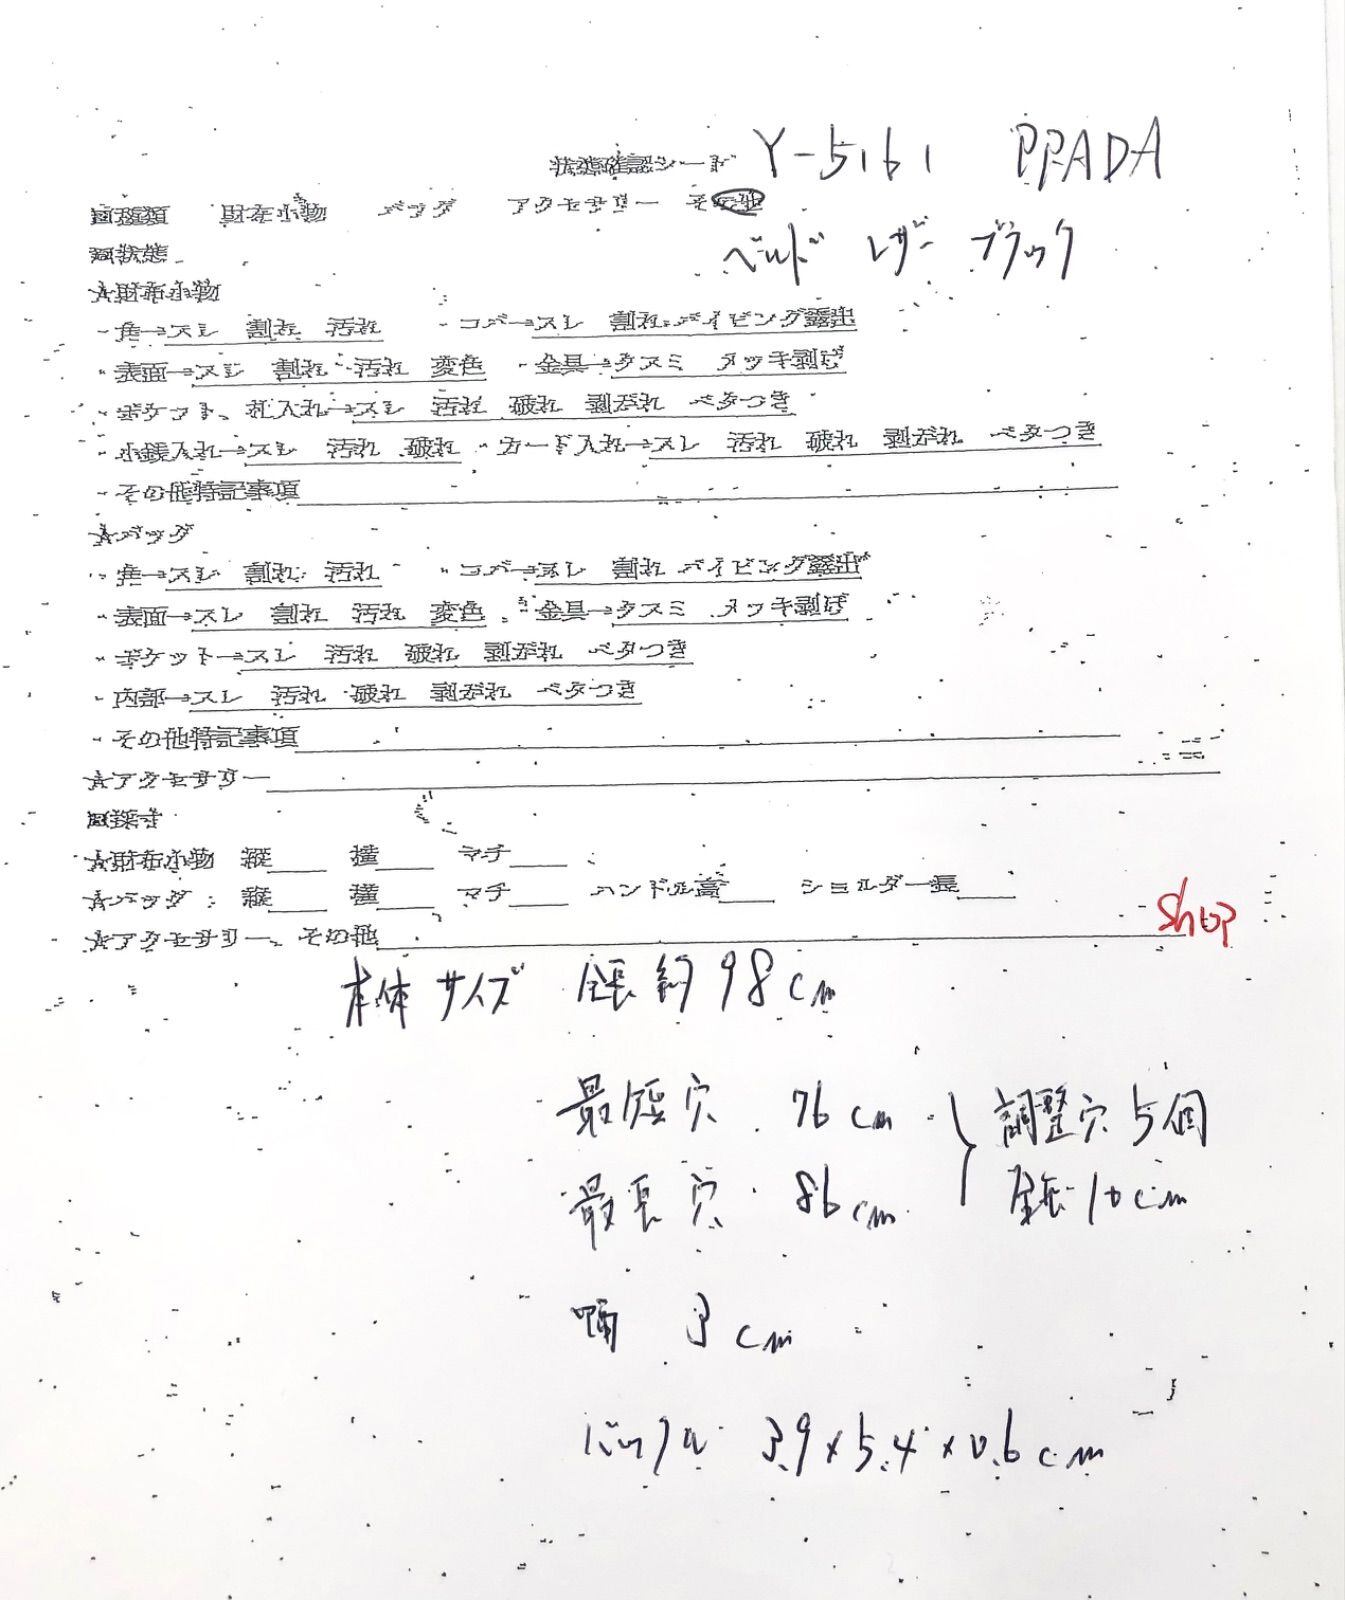 状態確認シート Y-5161 PRADA
■種類 財布小物 バッグ アクセサリー その他
ベルト レザー ブラック
■状態
★財布小物
・角→スレ 割れ 汚れ ・コバ→スレ 割れ パイピング露出
・表面→スレ 割れ 汚れ 変色 ・金具→クスミ メッキ剥げ
・ポケット、札入れ→スレ 汚れ 破れ 剥がれ ベタつき
・小銭入れ→スレ 汚れ 破れ ・カード入れ→スレ 汚れ 破れ 剥がれ ベタつき
・その他特記事項
★バッグ
・角→スレ 割れ 汚れ ・コバ→スレ 割れ パイピング露出
・表面→スレ 割れ 汚れ 変色 ・金具→クスミ メッキ剥げ
・ポケット→スレ 汚れ 破れ 剥がれ ベタつき
・内部→スレ 汚れ 破れ 剥がれ ベタつき
・その他特記事項
★アクセサリー
■採寸
★財布小物 縦 横 マチ
★バッグ 縦 横 マチ ハンドル高 ショルダー長
★アクセサリー、その他
shop
本体サイズ 全長約98cm
最短穴 76cm 調整穴5個
最長穴 86cm 全長10cm
幅 3cm
バックル 3.9×5.4×0.6cm